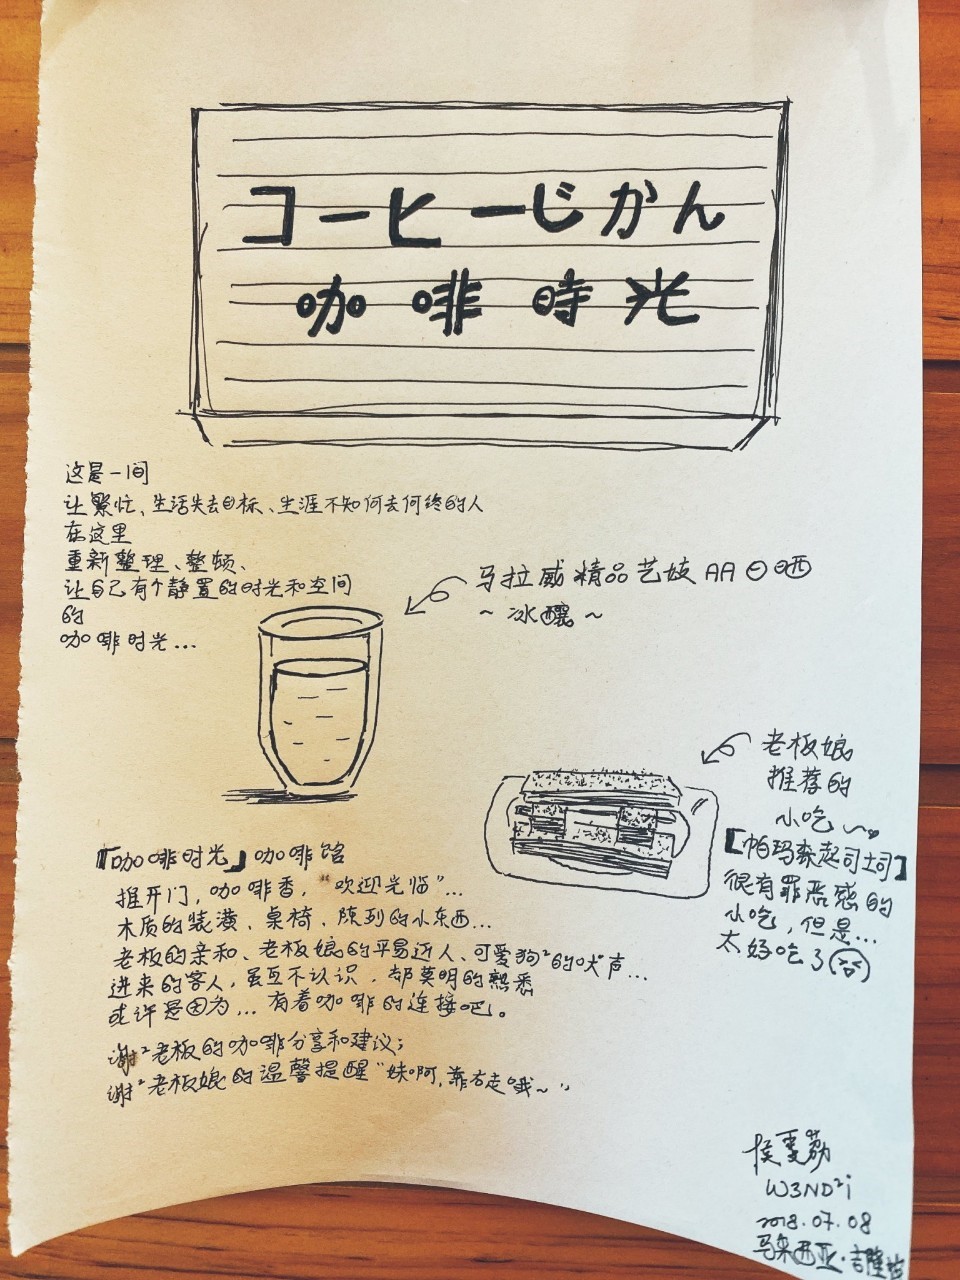 コーヒーじかん
咖啡時光
这是一间
让繁忙、生活失去目标、生涯不知何去何终的人
在这里
重新整理、整顿、
让自己有个静置的时光和空间
的
咖啡时光...
马拉威精品艺妓AA日晒
~冰釀~
老板娘
推荐的
小吃~
【帕玛森起司土司】
很有罪恶感的
小吃，但是...
太好吃了
「咖啡时光」咖啡馆
推开门，咖啡香，“欢迎光临”...
木质的装潢、桌椅、陈列的小东西...
老板的亲和、老板娘的平易近人、可爱狗²的吠声...
进来的客人，虽互不认识，却莫明的熟悉
或许是因为...有着咖啡的连接吧。
谢²老板的咖啡分享和建议；
谢²老板娘的温馨提醒“妹啊，靠右走哦~”
W3ND²i
2018.07.08
马来西亚·吉隆坡